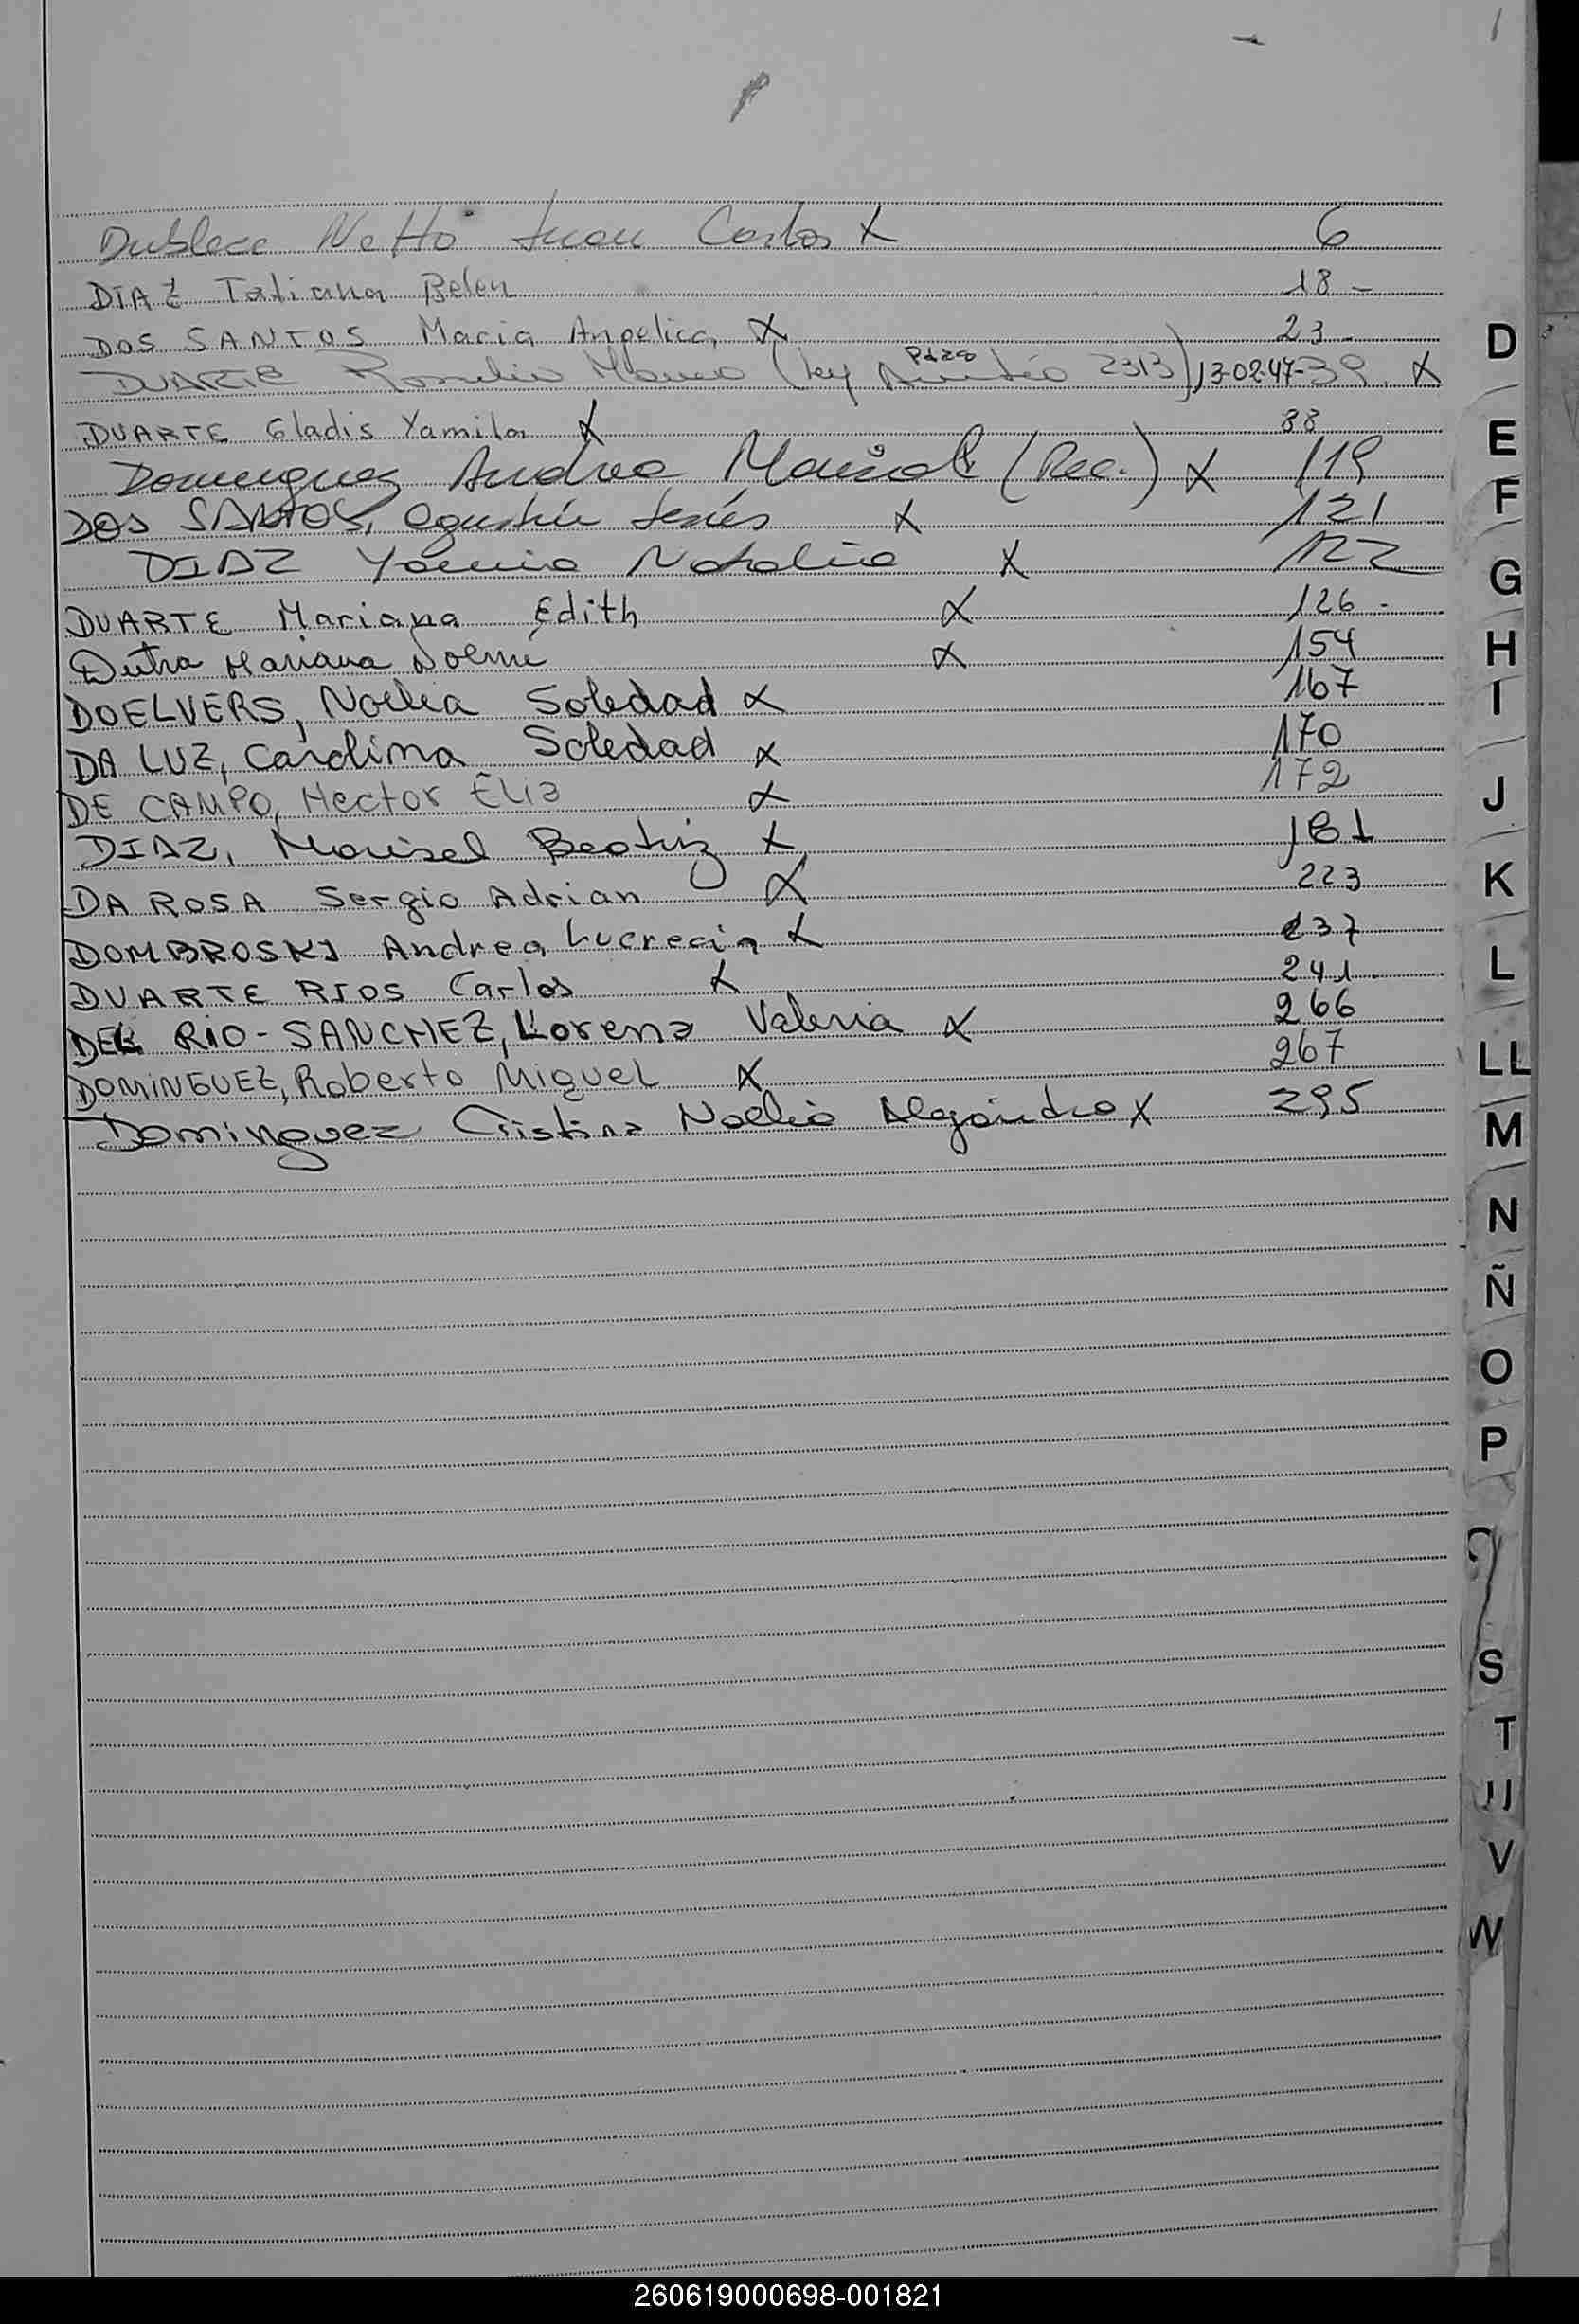 Dublecc Netto Juan Carlos X 6
DIAZ Tatiana Belen 18 -
DOS SANTOS Maria Angelica X 23 -
DUARTE Rosalia (ley 2313) 13-02-47- 39 X
DUARTE Gladis Yamila X 88
Dominguez Andrea Marisol (Rec.) X 119
DOS SANTOS, Agustín Jesús X 121
DIAZ Yamila Natalia X 122
DUARTE Mariana Edith X 126 -
Dutra Mariana Noemí X 154
DOELVERS, Noelia Soledad X 167
DA LUZ, Carolina Soledad X 170
DE CAMPO, Hector Elia X 172
DIAZ, Marisel Beatriz X 181
DA ROSA Sergio Adrian X 223
DOMBROSKI Andrea Lucrecia X 237
DUARTE RIOS Carlos X 241
DEL RIO-SANCHEZ, Lorena Valeria X 266
DOMINGUEZ, Roberto Miguel X 267
Dominguez Cristina Noelia Alejandra X 295
D
E
F
G
H
I
J
K
L
LL
M
N
Ñ
O
P
S
T
U
V
W
260619000698-001821